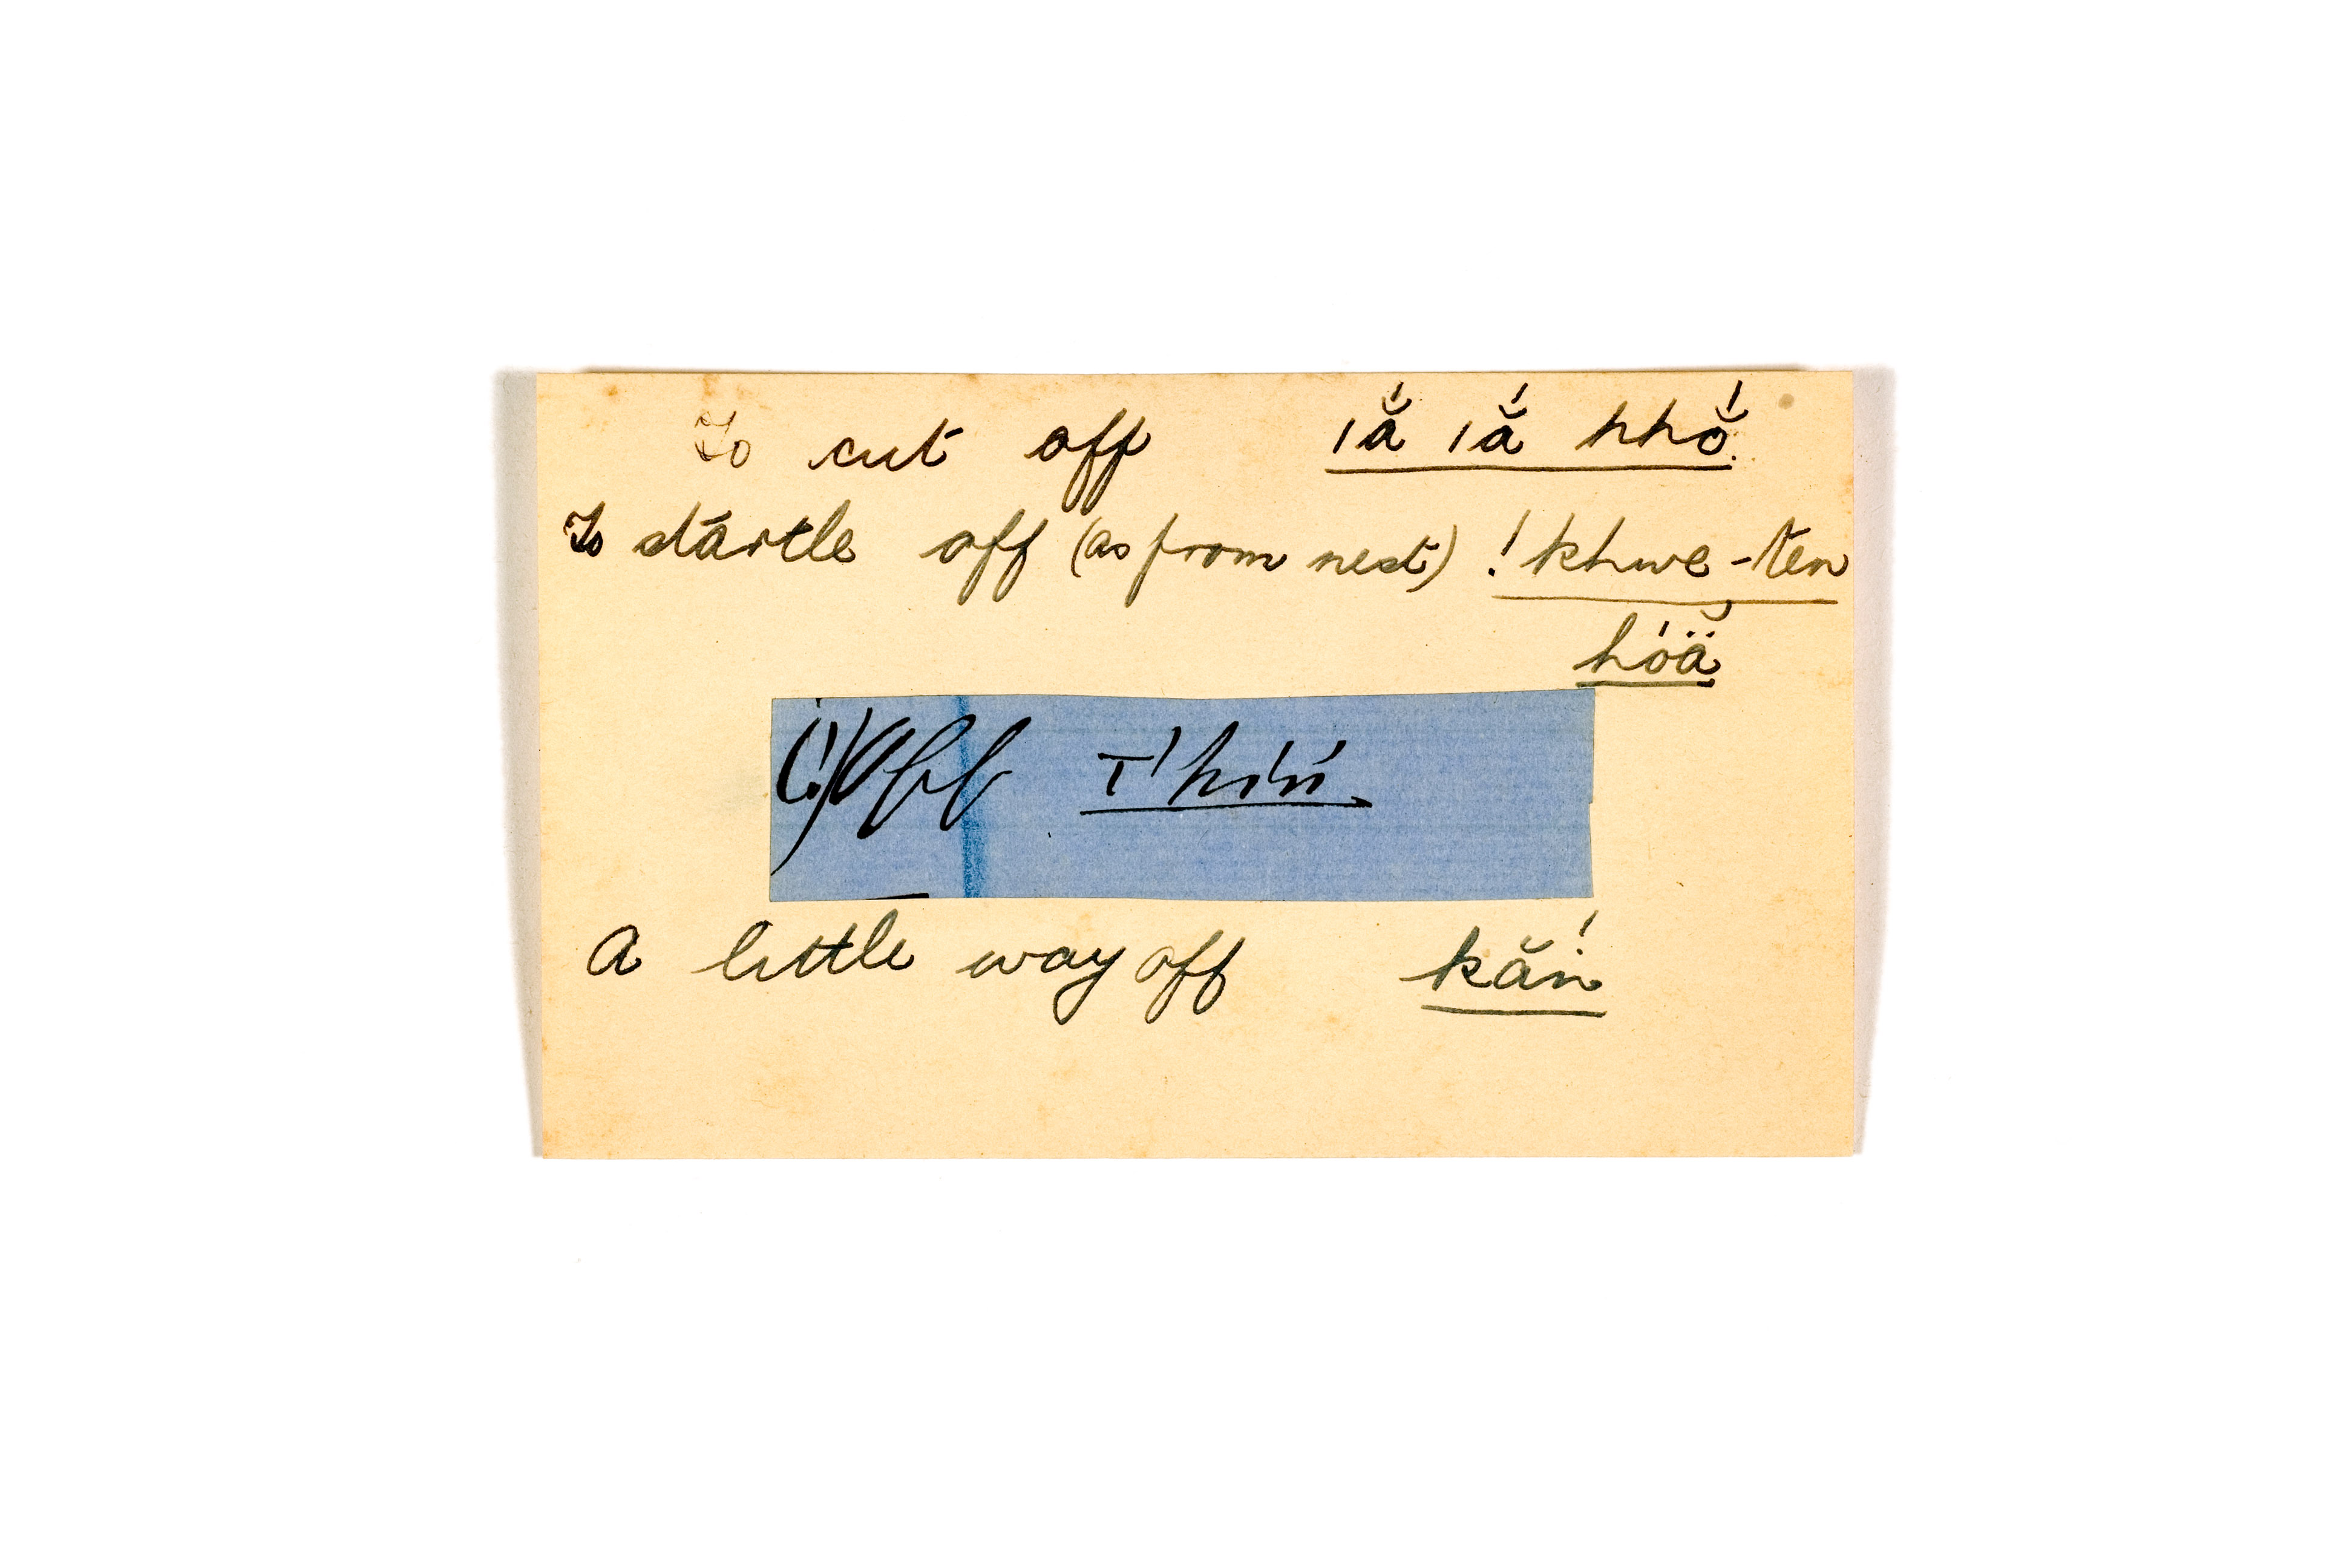 To cut off ıắ ıắ hhŏ́.
To startle off (as from nest) !khwe-ten
hóä̆
(!) Off
A little way off kăṅ́